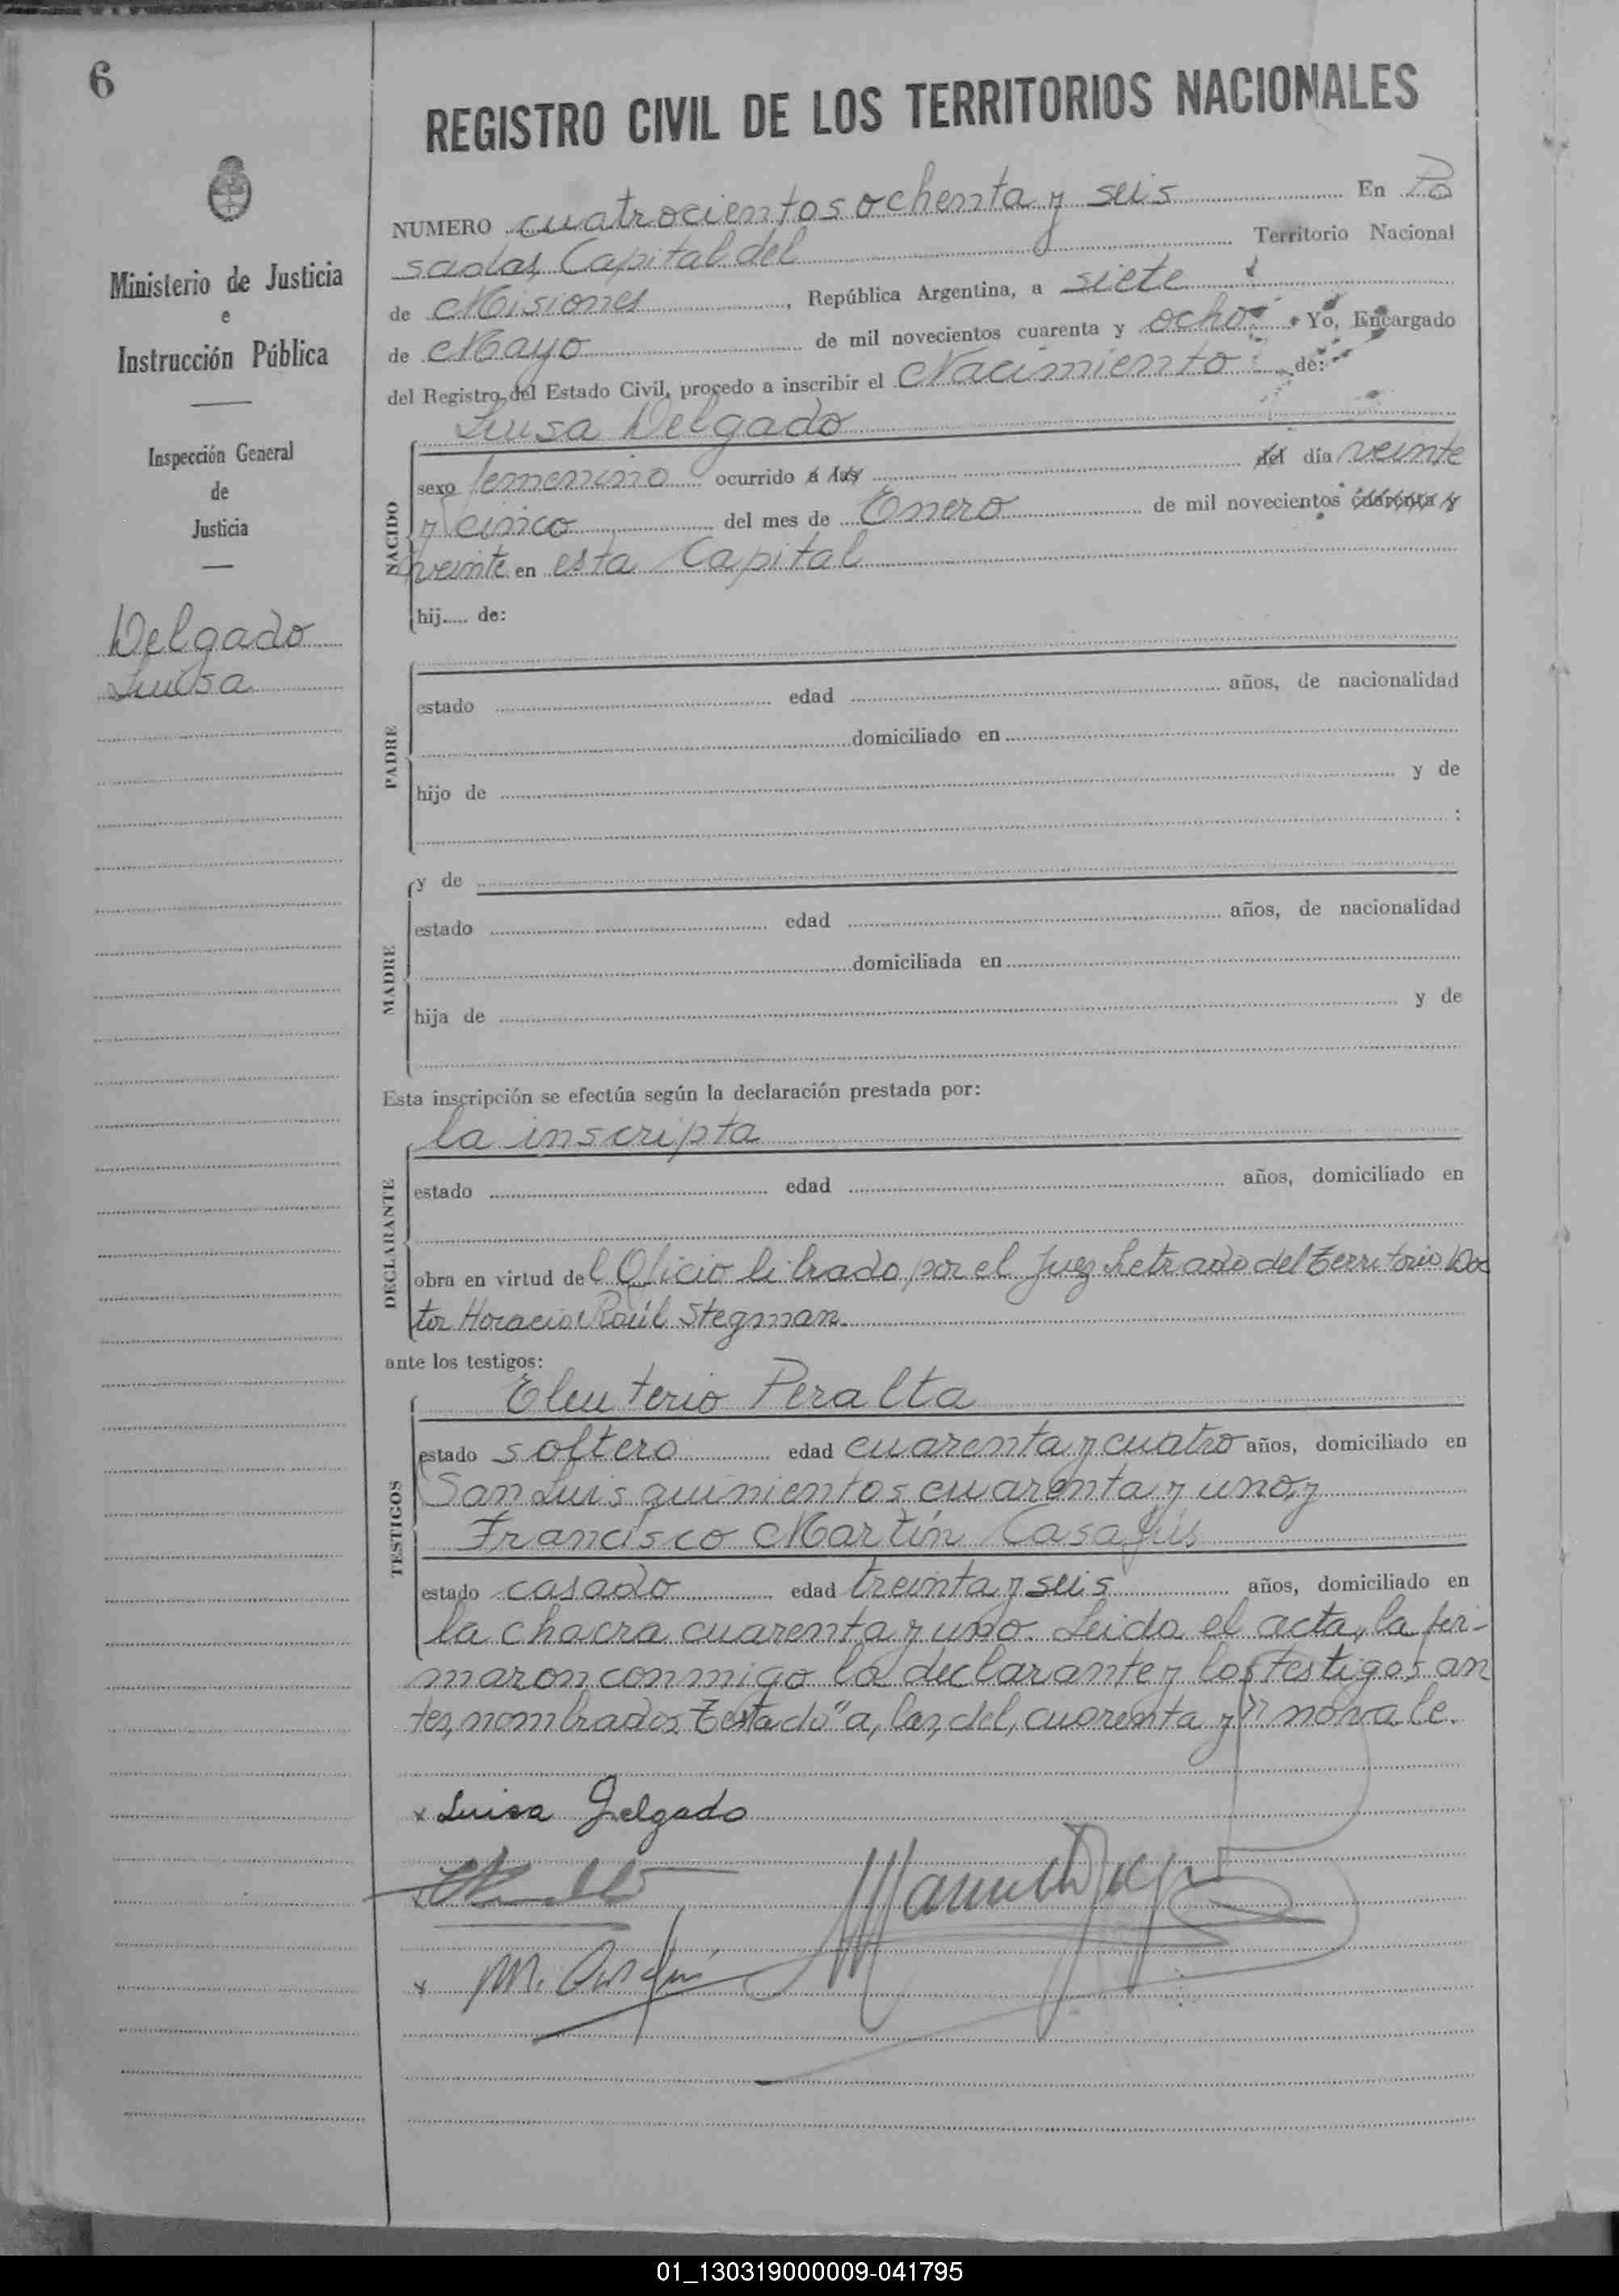 6
REGISTRO CIVIL DE LOS TERRITORIOS NACIONALES
Ministerio de Justicia
e
Instrucción Pública
Inspección General
de
Justicia
Delgado
Luisa
NUMERO cuatrocientos ochenta y seis En Po
sadas Capital del Territorio Nacional
de Misiones, República Argentina, a siete
de Mayo de mil novecientos cuarenta y ocho Yo, Encargado
del Registro del Estado Civil, procedo a inscribir el Nacimiento de:
Luisa Delgado
NACIDO
sexo femenino ocurrido a las del día veinte
y cinco del mes de Enero de mil novecientos cuarenta y
veinte en esta Capital
hij..... de:
PADRE
estado edad años, de nacionalidad
domiciliado en
hijo de y de
:
MADRE
y de
estado edad años, de nacionalidad
domiciliada en
hija de y de
Esta inscripción se efectúa según la declaración prestada por:
la inscripta
DECLARANTE
estado edad años, domiciliado en
obra en virtud del Oficio librado por el Juez Letrado del Territorio Doc
tor Horacio Raúl Stegman.
ante los testigos:
Eleuterio Peralta
TESTIGOS
estado soltero edad cuarenta y cuatro años, domiciliado en
San Luis quinientos cuarenta y uno y
Francisco Martín Casafús
estado casado edad treinta y seis años, domiciliado en
la chacra cuarenta y uno. Leida el acta, la fir-
maron conmigo la declarante y los testigos an
tes nombrados Testado "a, las, del, cuarenta y" no vale.
x Luisa Delgado
x M.
01_130319000009-041795